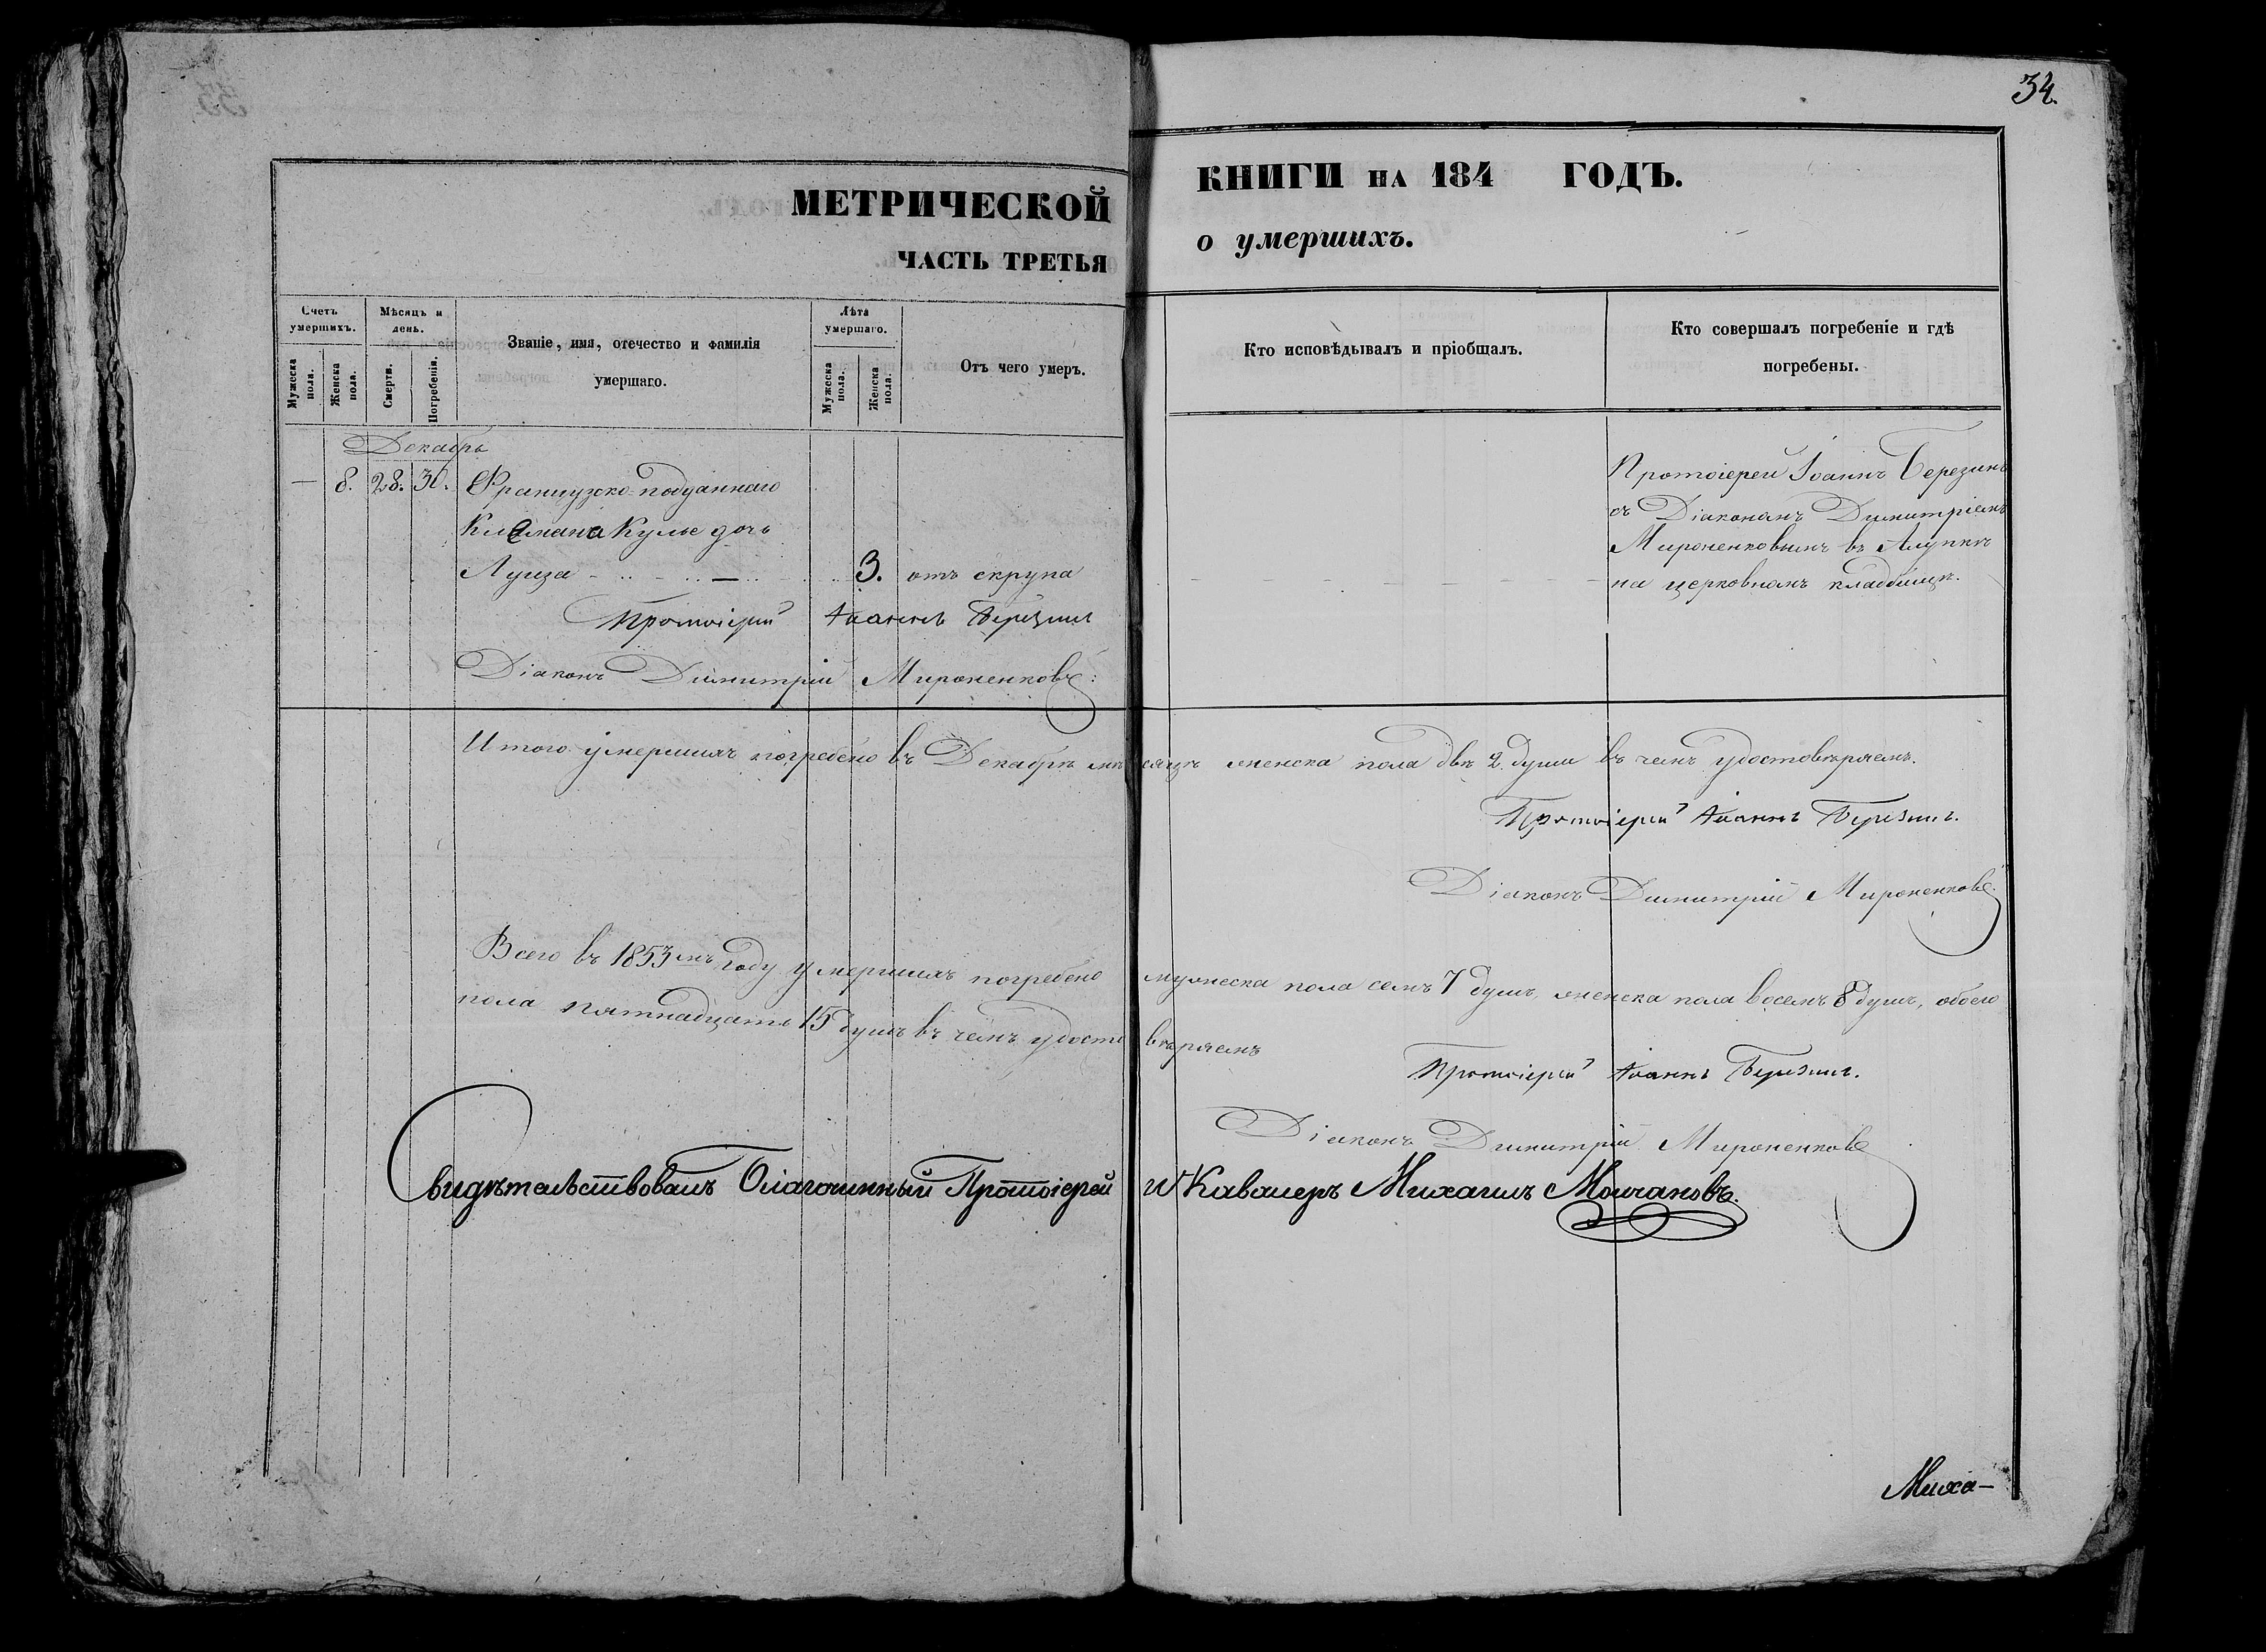 34.
МЕТРИЧЕСКОЙ КНИГИ НА 184 ГОДЪ.
ЧАСТЬ ТРЕТЬЯ о умершихъ.
Счетъ умершихъ.
Мужеска пола.
Женска пола.
Мѣсяцъ и день.
Смерти.
Погребенія.
Званіе, имя, отечество и фамилія
умершаго.
Лѣта умершаго.
Мужеска пола.
Женска пола.
Отъ чего умеръ.
Кто исповѣдывалъ и пріобщалъ.
Кто совершалъ погребеніе и гдѣ
погребены.
Декабрь
— 8. 28. 30. Французско-подданнаго
Клемана Кулье дочь
Луиза 3. отъ скрупа
Протоіерей Іоаннъ Березинъ
съ Діакономъ Димитріемъ
Мироненковымъ въ Алупкѣ
на церковномъ кладбищѣ.
Протоіерей Іоаннъ Березинъ
Діаконъ Димитрій Мироненковъ
Итого умершихъ погребено въ Декабрѣ мѣсяцѣ женска пола двѣ 2. души въ чемъ удостовѣряемъ.
Протоіерей Іоаннъ Березинъ.
Діаконъ Димитрій Мироненковъ.
Всего въ 1853мъ году умершихъ погребено мужеска пола семь 7 душъ, женска пола восемь 8 душъ, обоего
пола пятнадцать 15 душъ въ чемъ удостовѣряемъ
Протоіерей Іоаннъ Березинъ.
Діаконъ Димитрій Мироненковъ
Свидѣтельствовалъ Благочинный Протоіерей и Кавалеръ Михаилъ Молчановъ.
Миха-